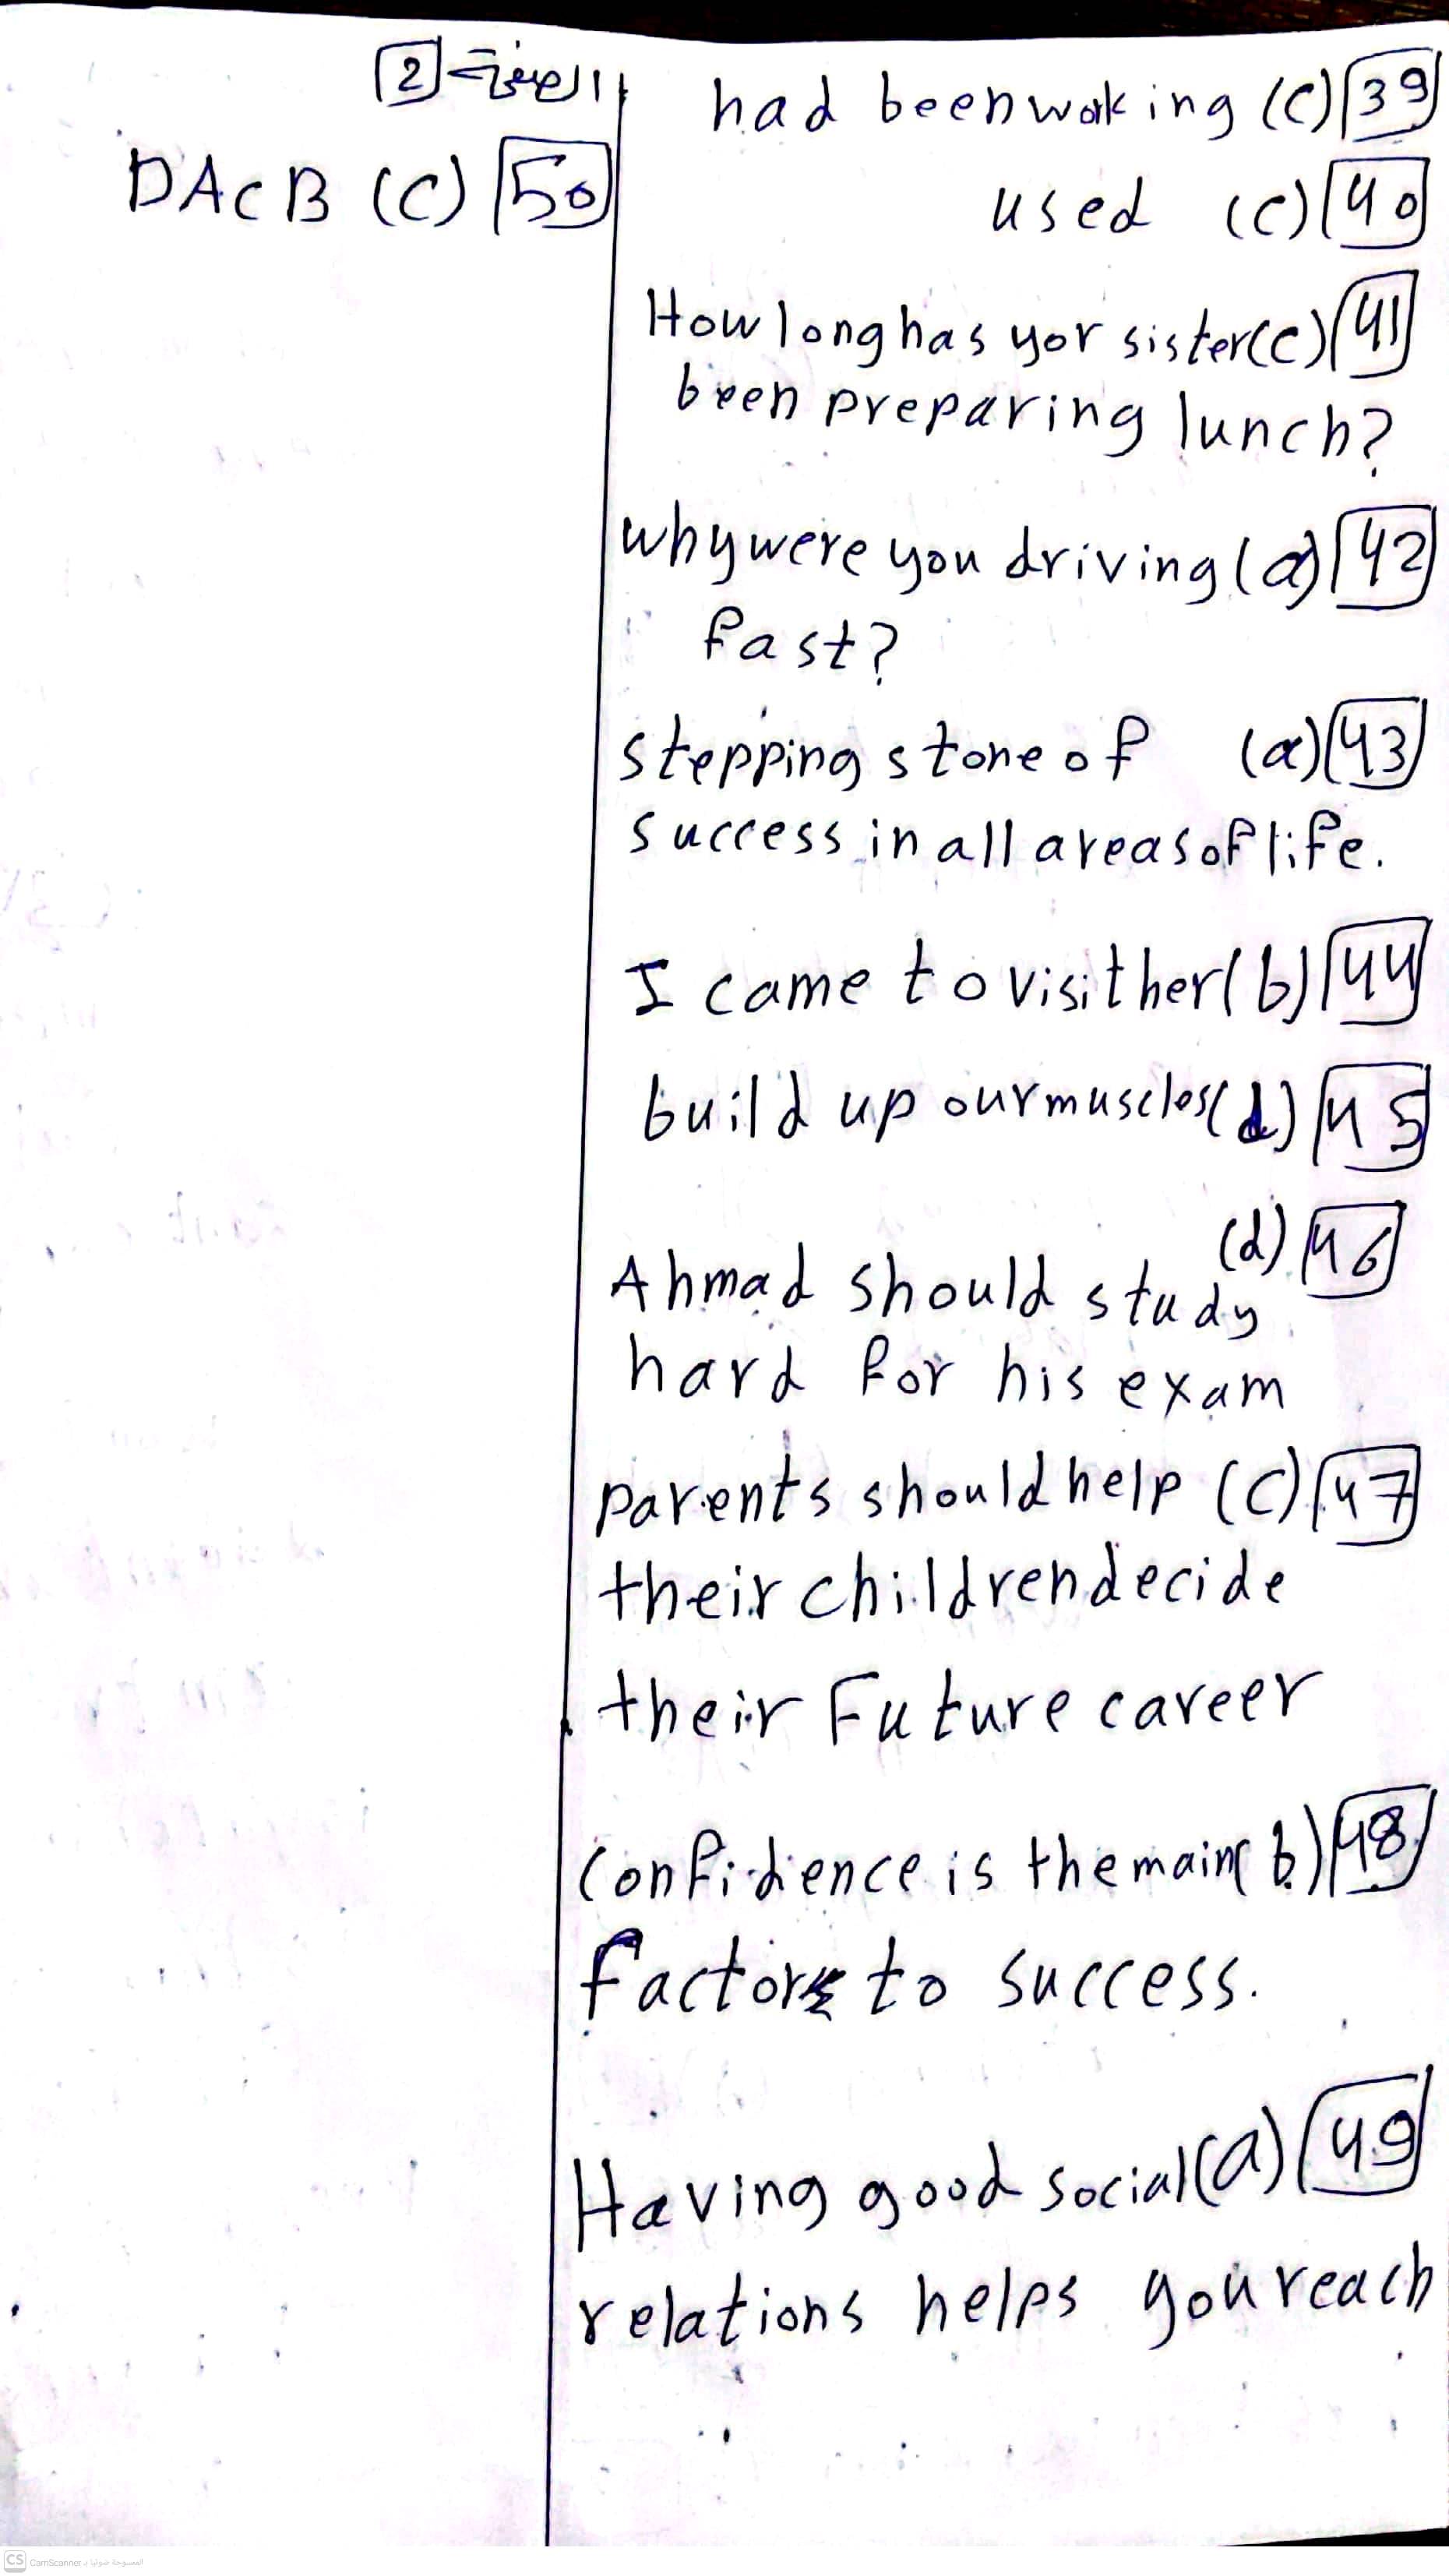 الصفحة 2
had been working (C) 39
used (C) 40
How long has yor sister (c) 41
been preparing lunch?
why were you driving (a) 42
fast?
stepping stone of (a) 43
success in all areas of life.
I came to visit her (b) 44
build up our muscles (d) 45
(d) 46
Ahmad should study
hard for his exam
parents should help (C) 47
their children decide
their Future career
confidience is the main (b) 48
factor to success.
Having good social (a) 49
relations helps you reach
DACB (C) 50
CS CamScanner الممسوحة ضوئيا بـ